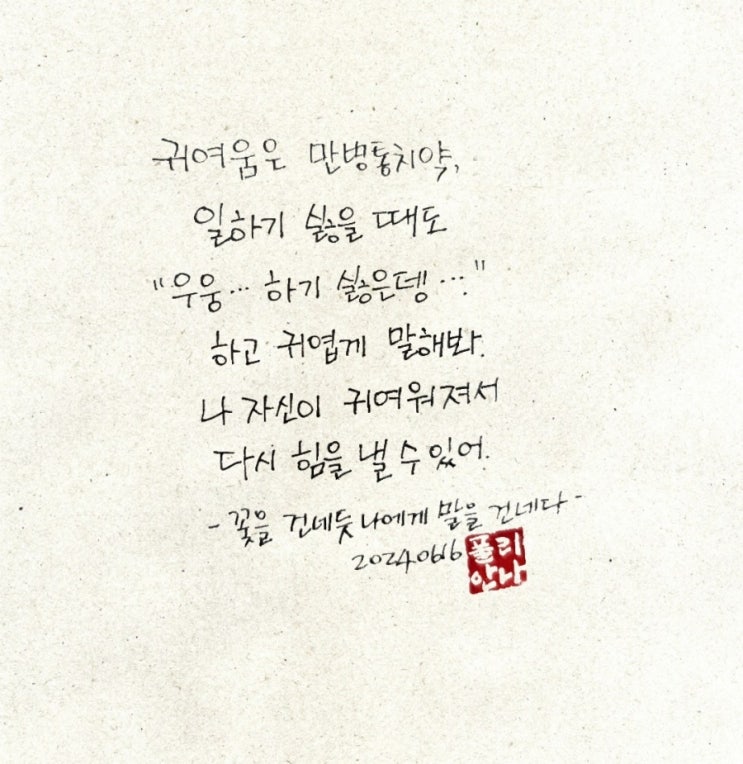 귀여움은 만병통치약,
일하기 싫을 때도
"우웅... 하기 싫은뎅..."
하고 귀엽게 말해봐.
나 자신이 귀여워져서
다시 힘을 낼 수 있어.
- 꽃을 건네듯 나에게 말을 건네다 -
20240616
폴리
안나